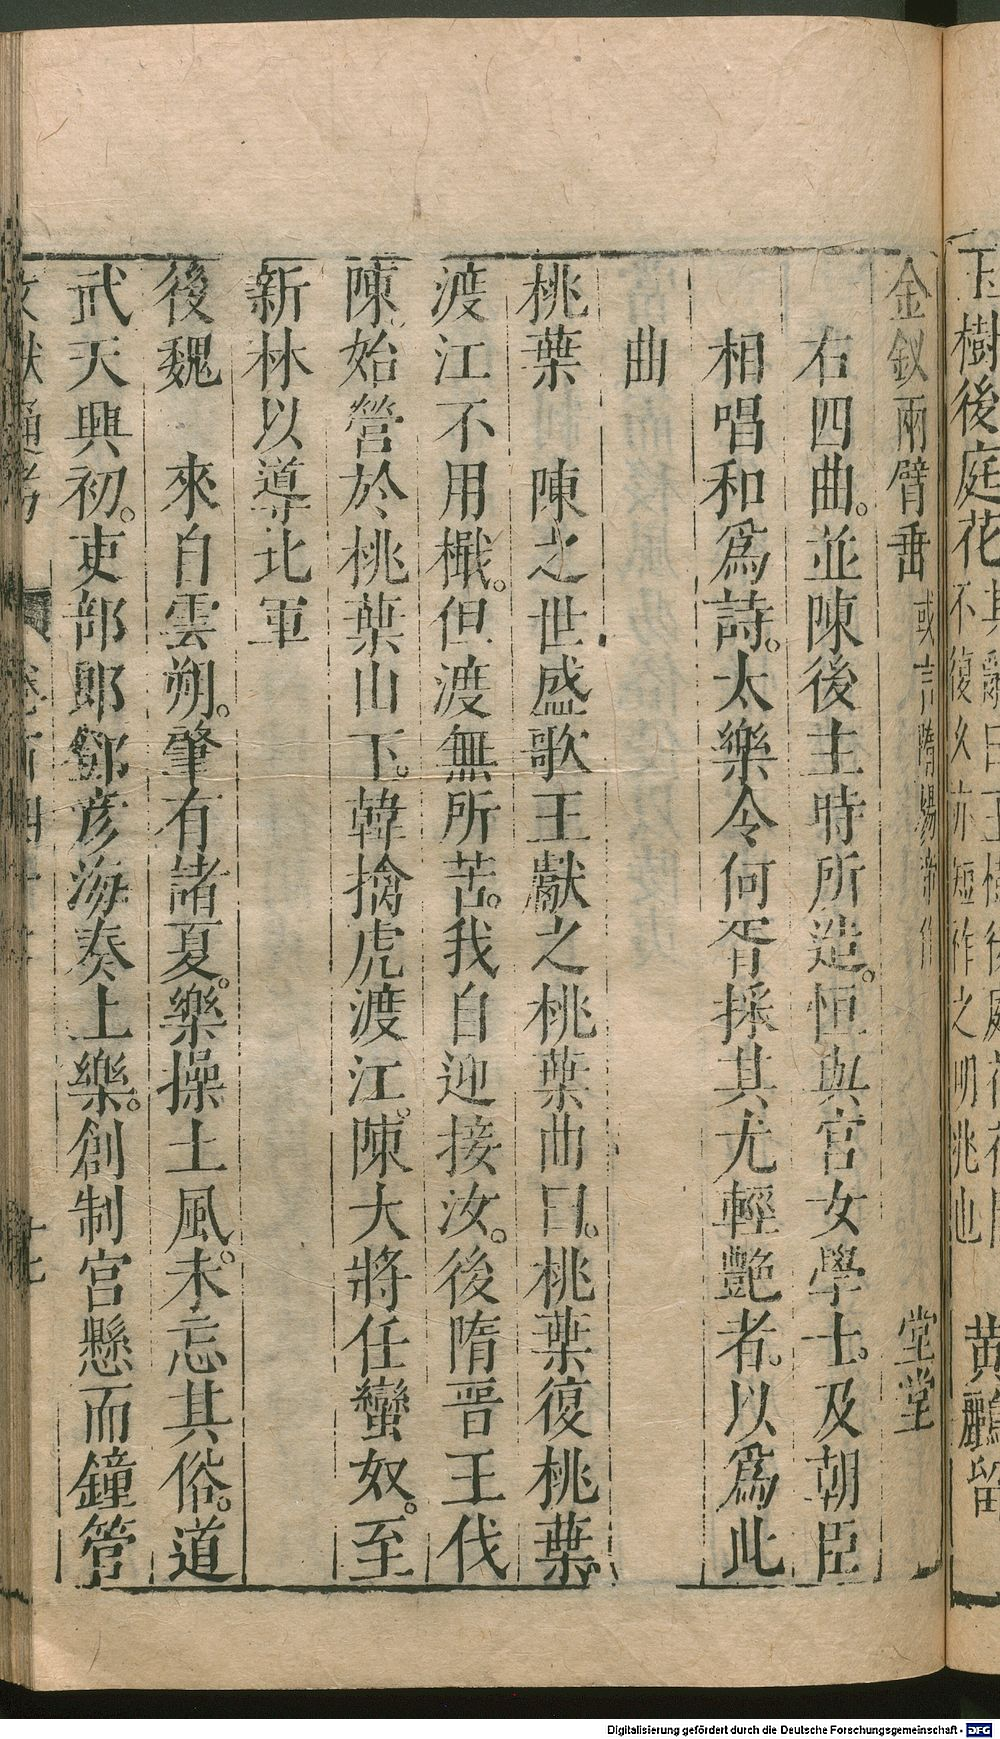 玉樹後庭花 其辭曰玉樹後庭花花開不復久亦短祚之明兆也 黃鸝留
金釵兩臂垂 或言隋煬帝作 堂堂
右四曲。並陳後主時所造。恒與宮女學士。及朝臣
相唱和爲詩。太樂令何胥採其尤輕艷者。以爲此
曲
桃葉 陳之世盛歌王獻之桃葉曲曰。桃葉復桃葉。
渡江不用檝。但渡無所苦。我自迎接汝。後隋晉王伐
陳。始營於桃葉山下。韓擒虎渡江。陳大將任蠻奴。至
新林以導北軍
後魏 來自雲朔。肇有諸夏。樂操土風。未忘其俗。道
武天興初。吏部郎鄧彥海。奏上樂。創制宮懸而鐘管
文獻通考 卷百四十二 十九
Digitalisierung gefördert durch die Deutsche Forschungsgemeinschaft - DFG